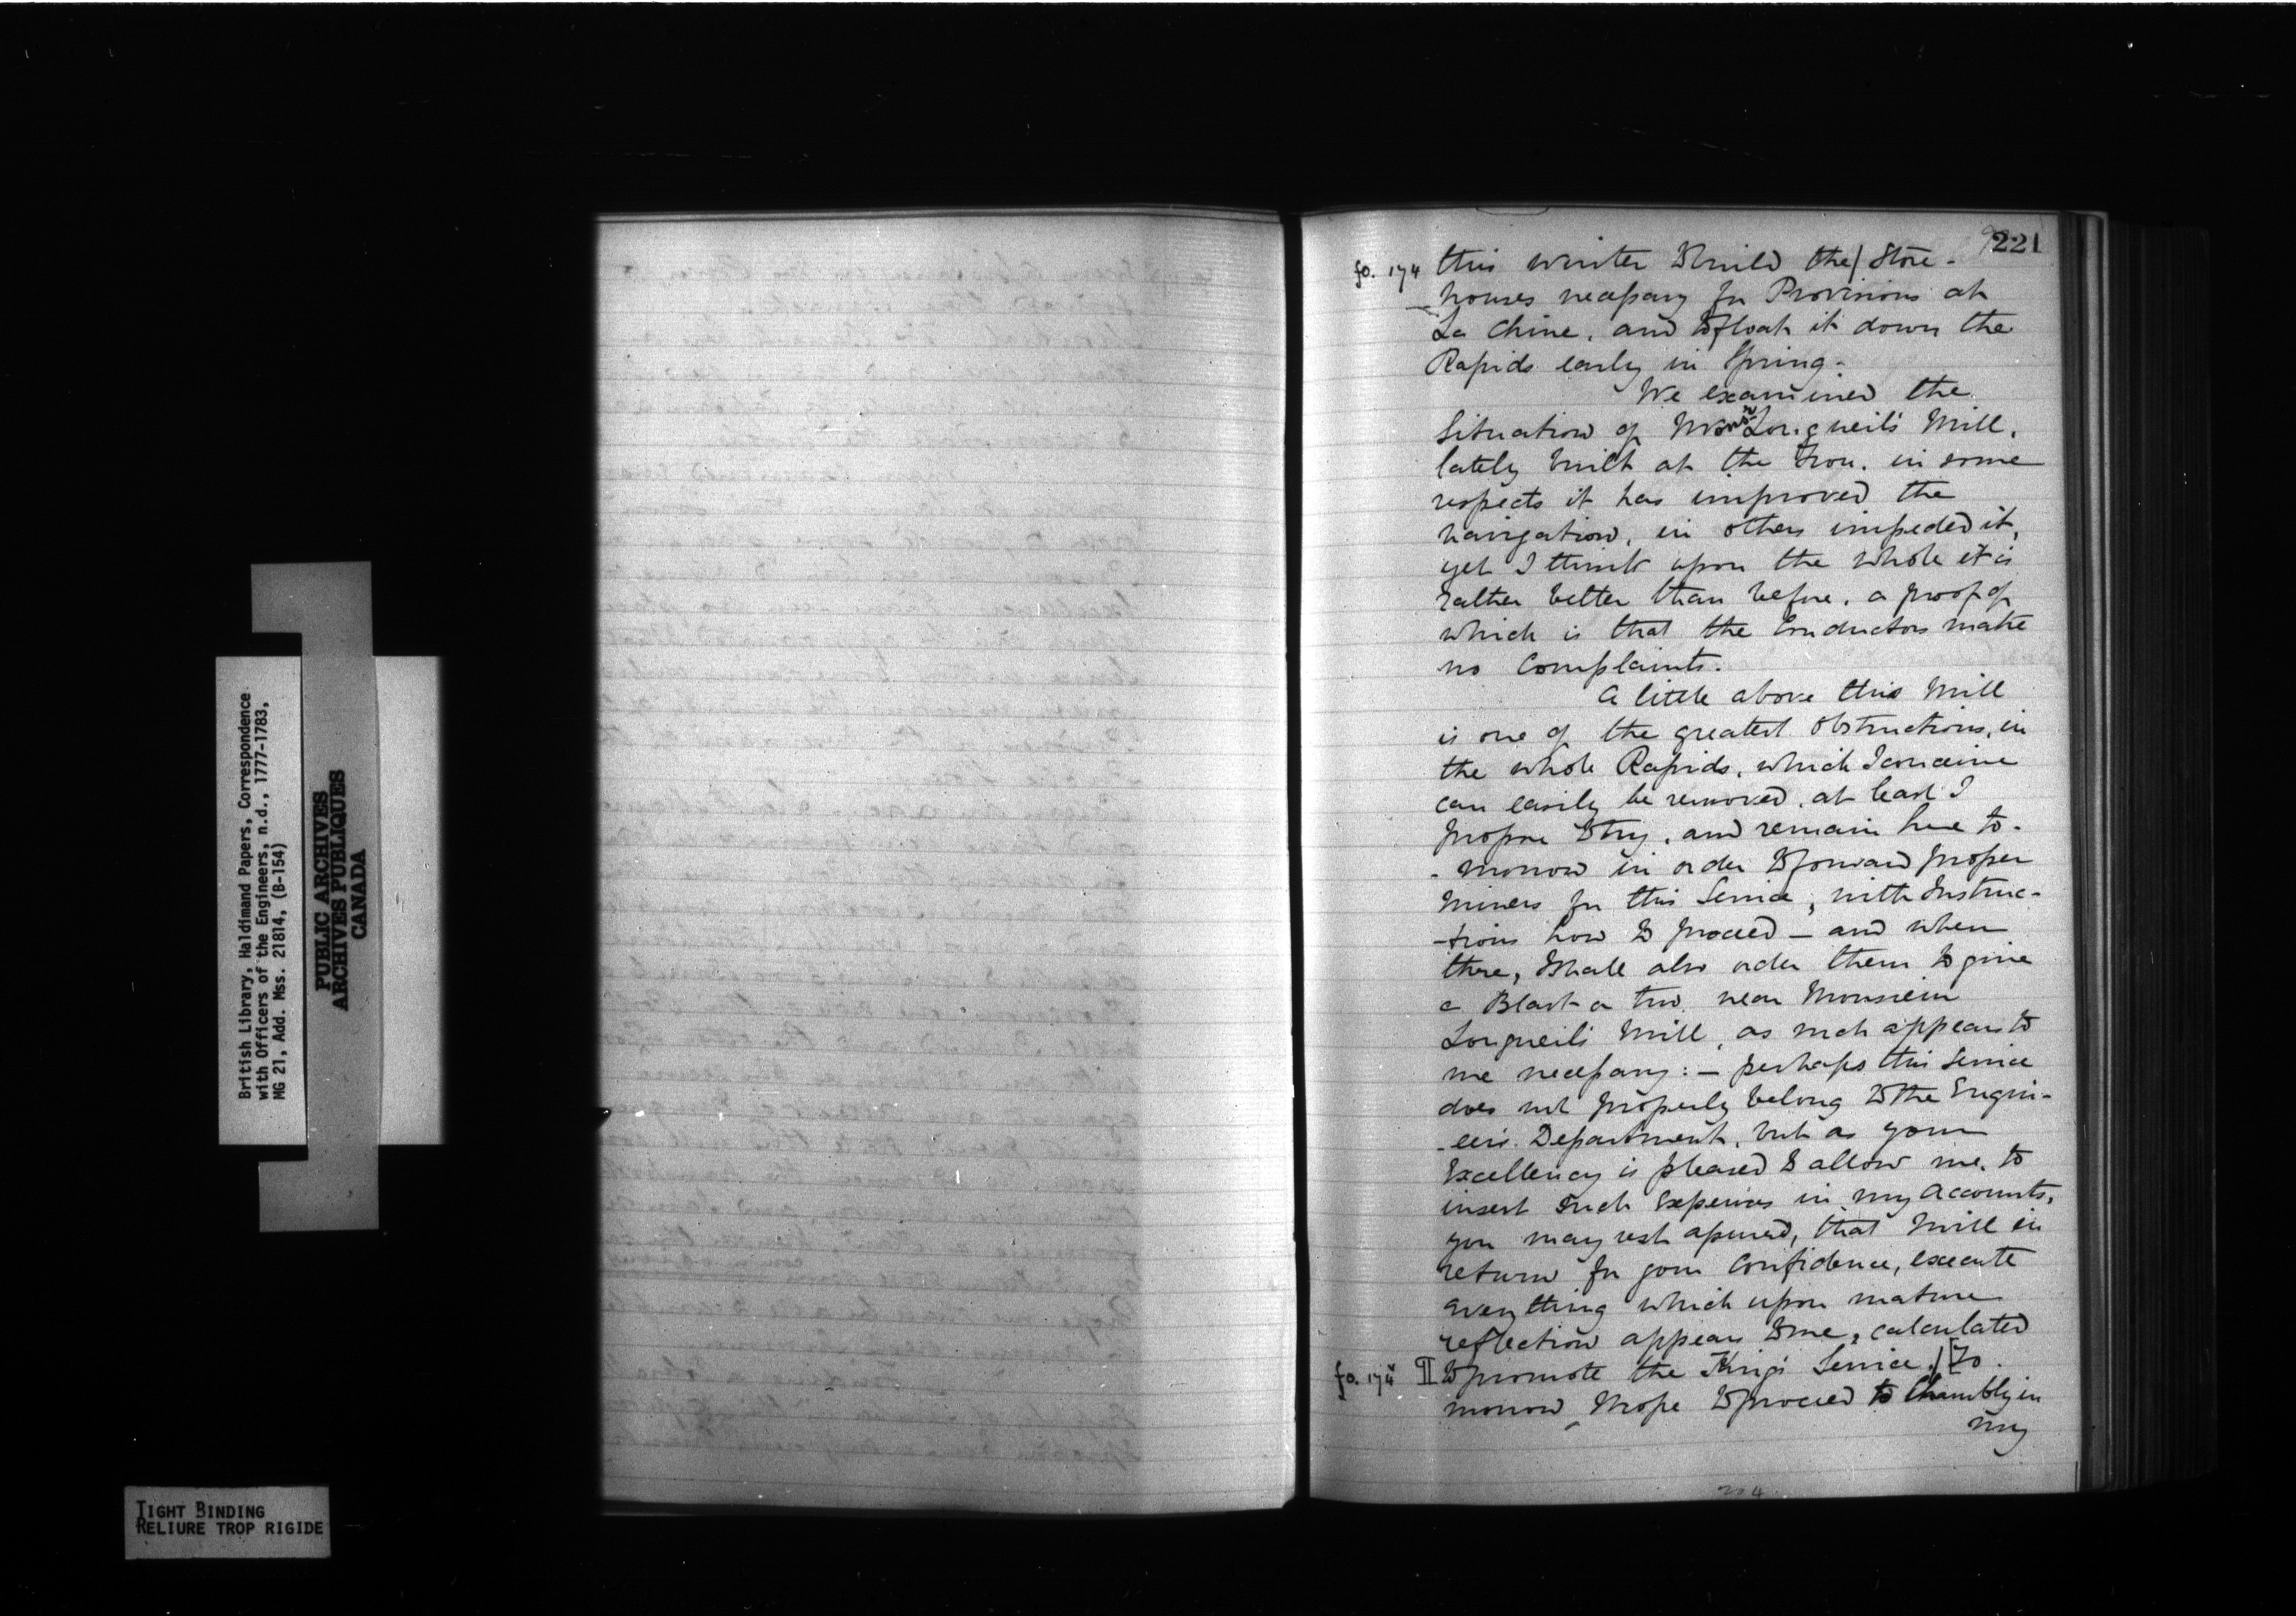 British Library, Haldimand Papers, Correspondence
with Officers of the Engineers, n.d., 1777-1783,
MG 21, Add. Mss. 21814, (B-154)
PUBLIC ARCHIVES
ARCHIVES PUBLIQUES
CANADA
TIGHT BINDING
RELIURE TROP RIGIDE
221
fo. 174 this winter to build the / Store-
houses necessary for Provisions at
La Chine, and to float it down the
Rapids early in Spring-
We examined the
Situation of Monsr Longueil's Mill,
lately built at the Trou. in some
respects it has improved the
navigation, in others impeded it,
yet I think upon the whole it is
rather better than before, a proof of
which is that the Conductors make
no Complaints.
A little above this Mill
is one of the greatest obstructions, in
the whole Rapids, which I conceive
can easily be removed, at least I
propose to try, and remain here to-
-morrow in order to forward proper
Miners for this Service, with Instruc-
-tions how to proceed — and when
there, I shall also order them to give
a Blast or two near Monsieur
Longueil's Mill, as such appears to
me necessary: — perhaps this Service
does not properly belong to the Engin-
-eers Department, but as your
Excellency is pleased to allow me, to
insert such Expences in my Accounts,
you may rest assured, that I will in
return for your Confidence, execute
every thing which upon mature
reflection appears to me, calculated
fo. 174 to promote the King's Service. / [To.
morrow I hope to proceed to Chambly in
my
204